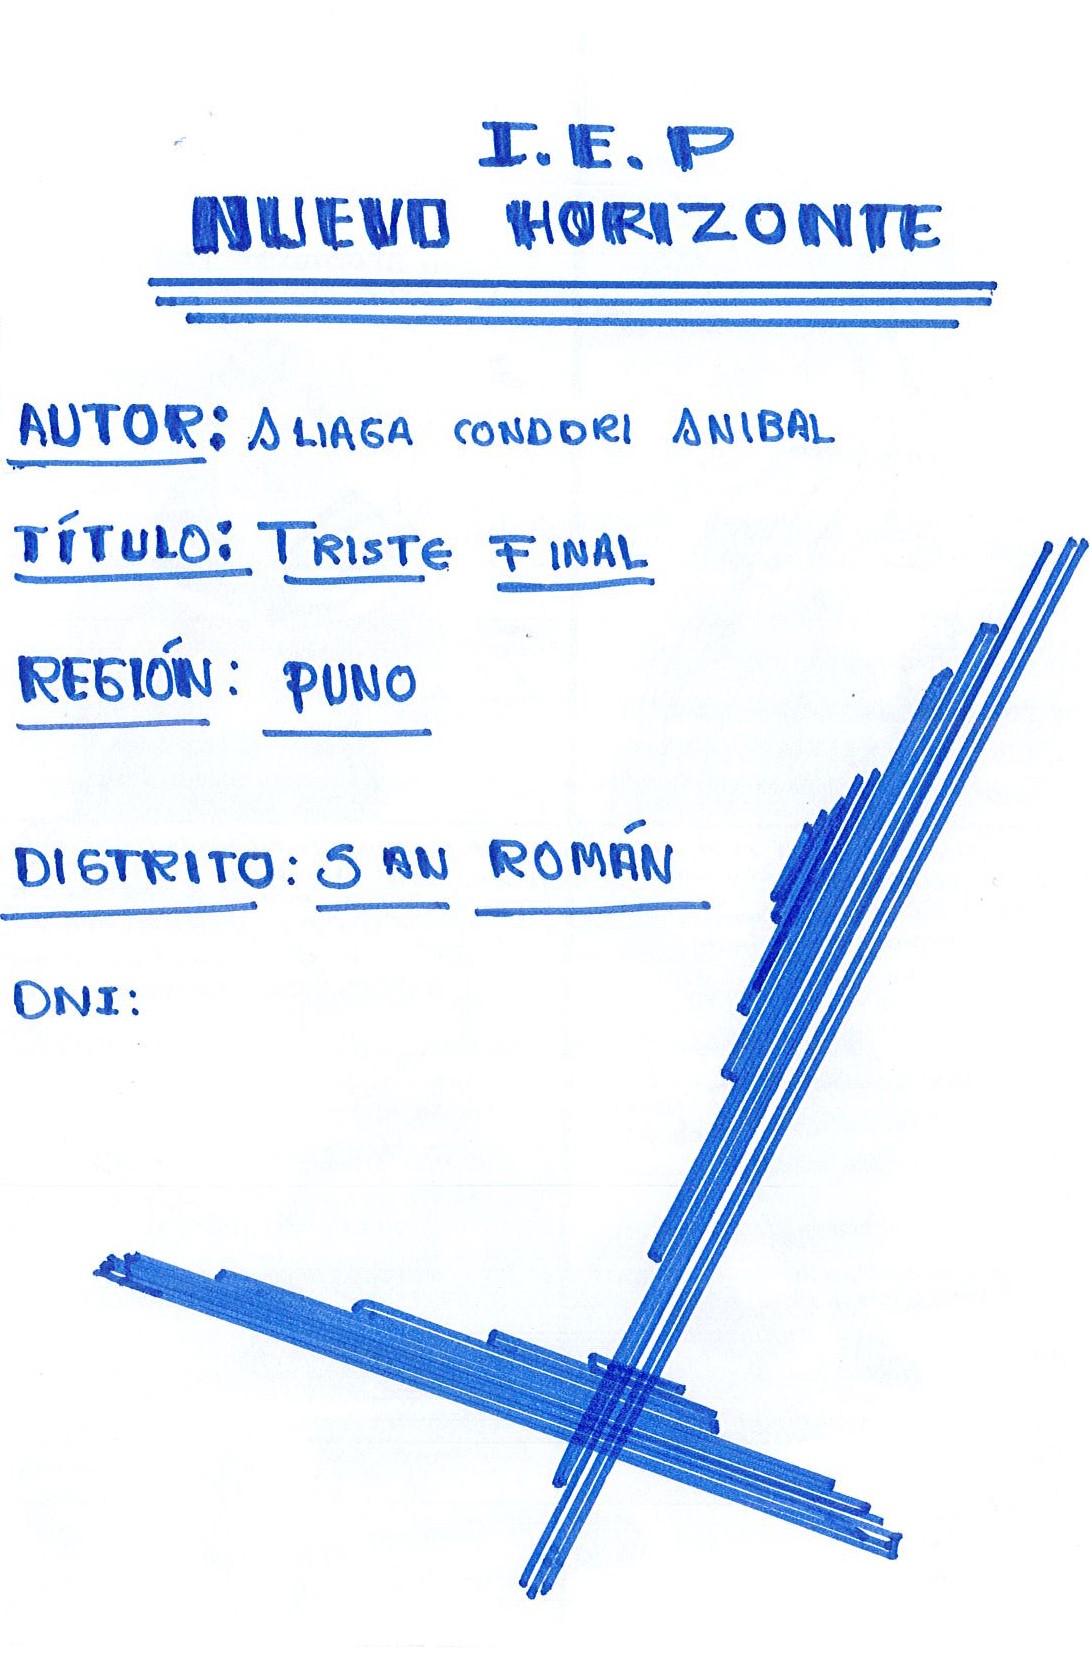 I.E.P
NUEVO HORIZONTE
AUTOR: ALIAGA CONDORI ANIBAL
TÍTULO: TRISTE FINAL
REGIÓN: PUNO
DISTRITO: SAN ROMÁN
DNI: